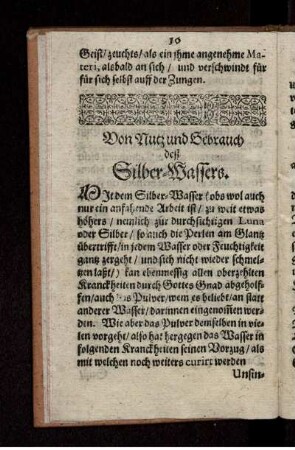 10
Geist / zeuchts / als ein ihme angenehme Ma-
teri, alsbald an sich / und verschwindt für
für sich selbst auff der Zungen.
Von Nutz und Gebrauch
deß
Silber-Wassers.
MIt dem Silber-Wasser (obs wol auch
nur ein anfahende Arbeit ist / zu weit etwas
höhers / nemlich zur durchsichtigen Luna
oder Silber / so auch die Perlen am Glantz
übertrifft / in jedem Wasser oder Feuchtigkeit
gantz zergeht / und sich nicht wieder schmel-
tzen laßt /) kan ebenmessig allen oberzehlten
Kranckheiten durch Gottes Gnad abgeholf-
fen / auch das Pulver / wem es beliebt / an statt
anderer Wasser / darinnen eingenom̃en wer-
den. Wie aber das Pulver demselben in vie-
len vorgeht / also hat hergegen das Wasser in
folgenden Kranckheiten seinen Vorzug / als
mit welchen noch weiters curirt werden
Unsin-